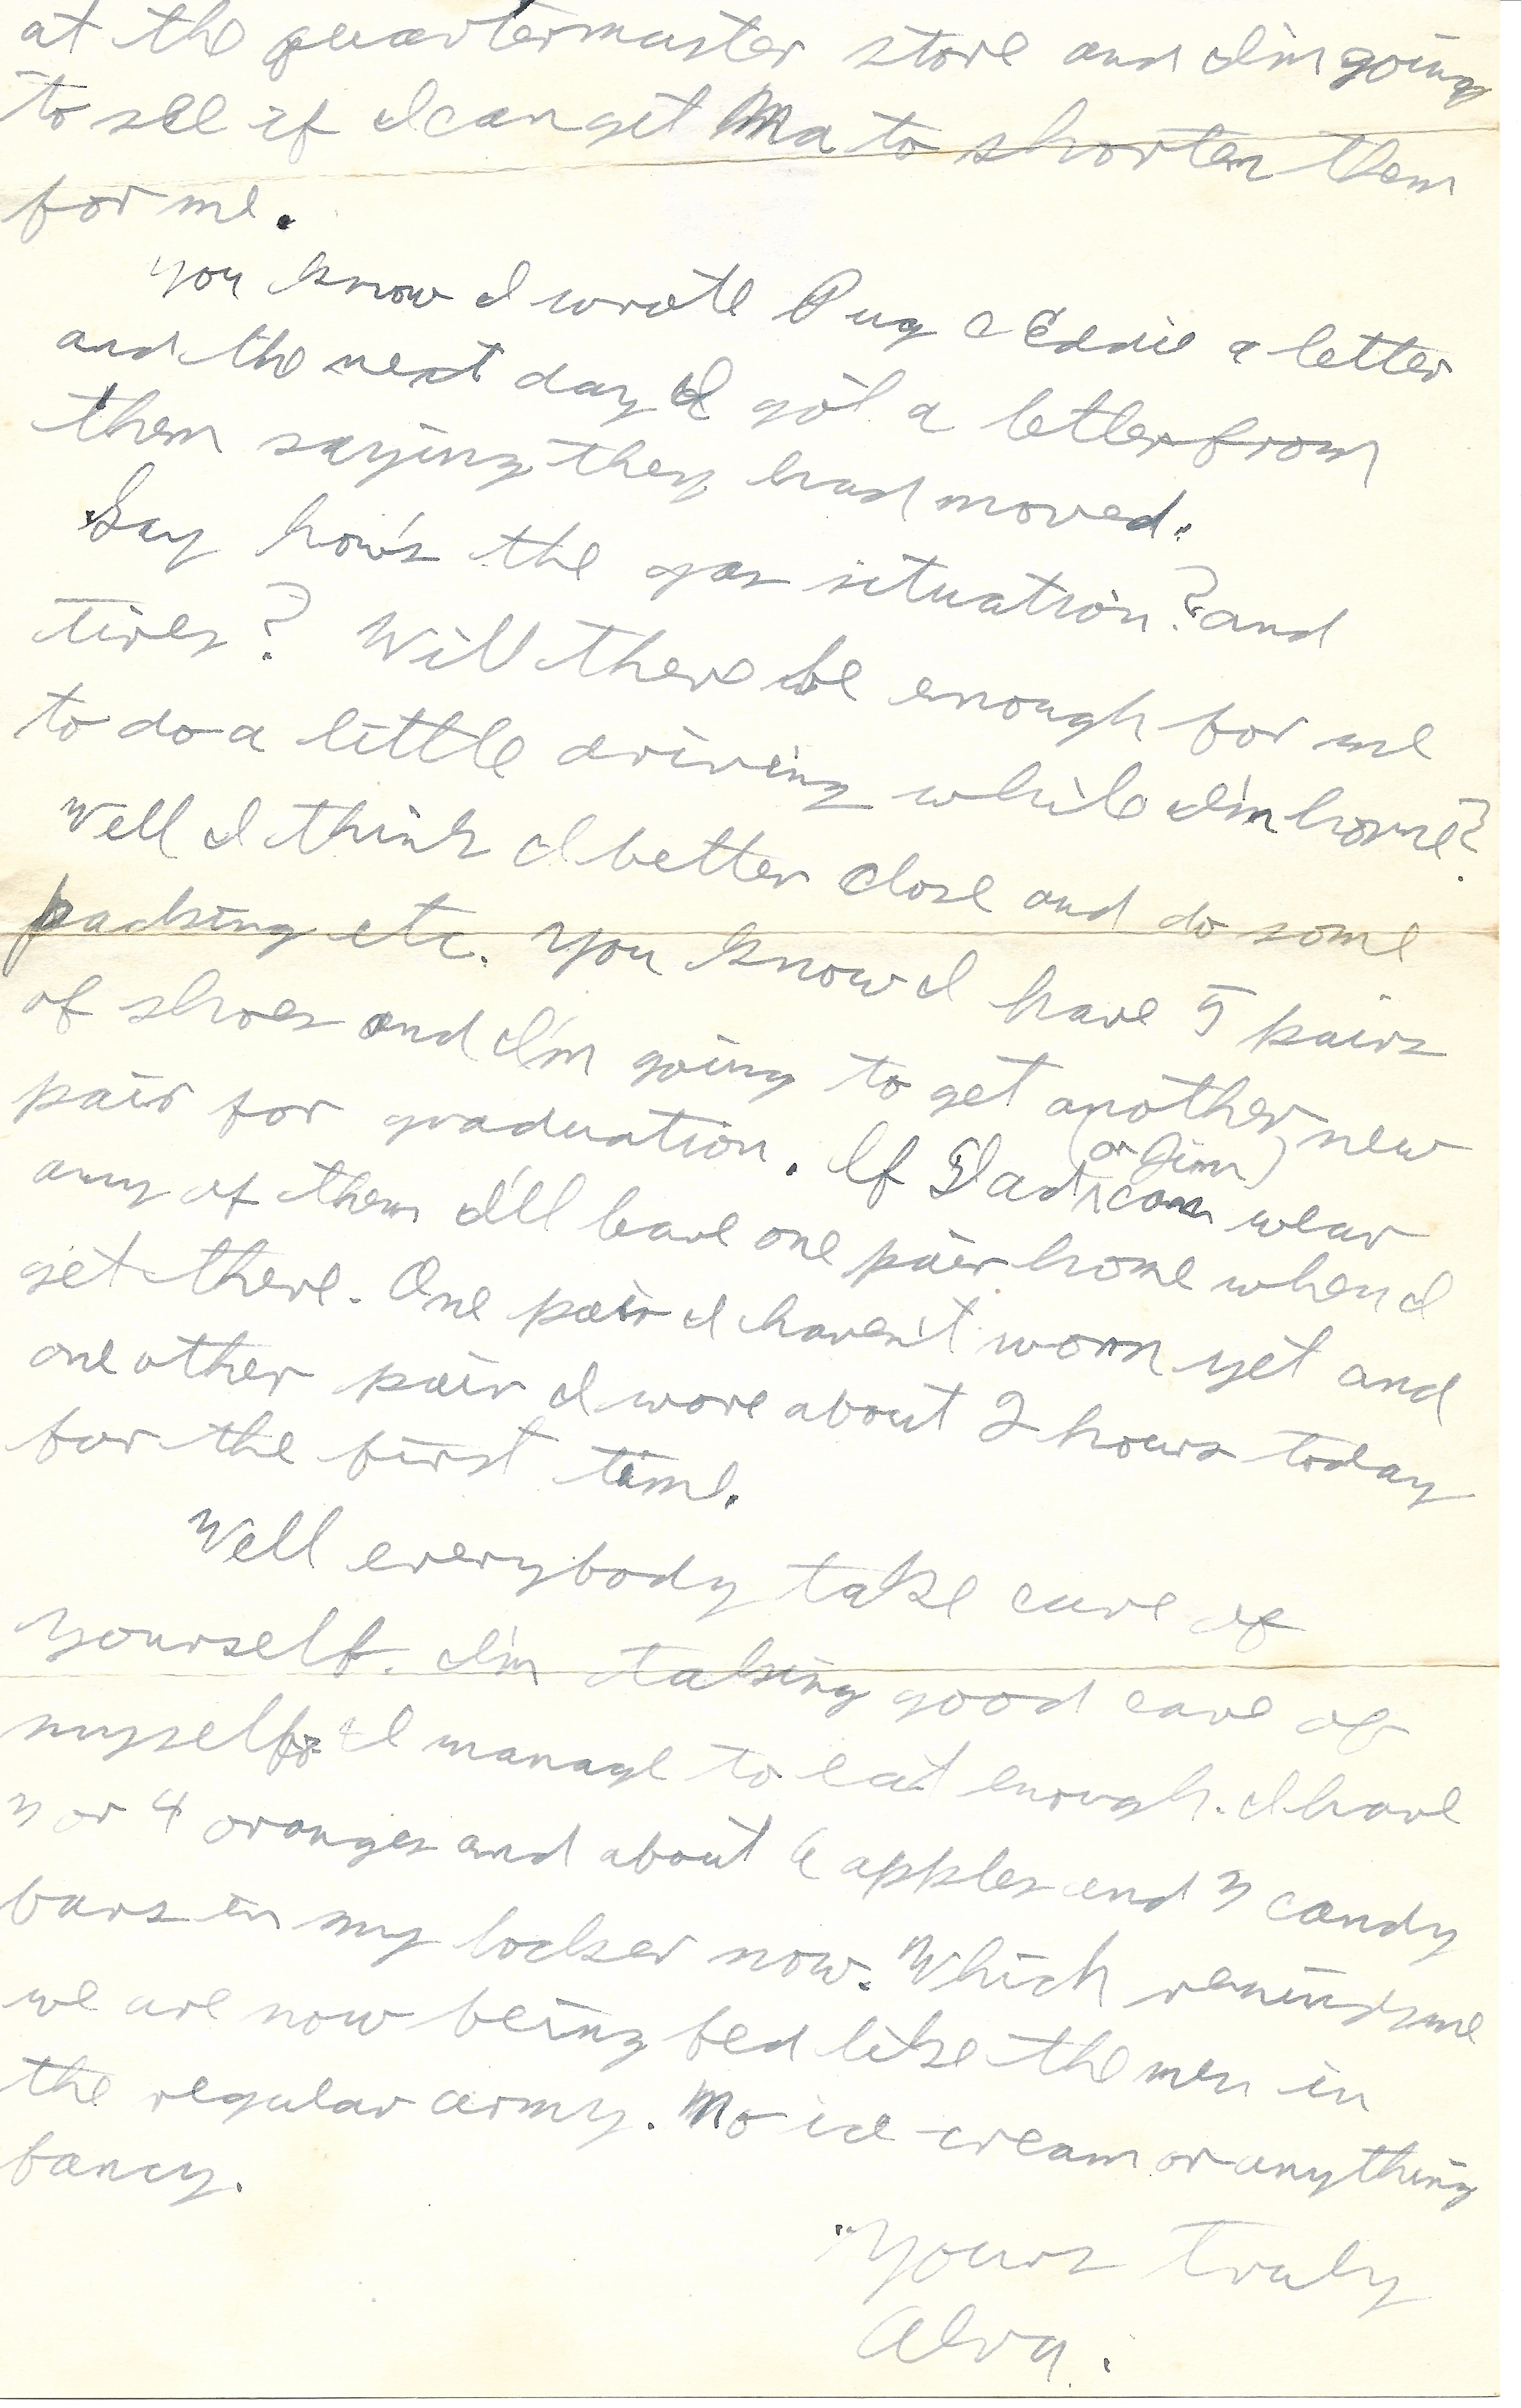 at the quartermaster store and I'm going
to see if I can get Ma to shorten them
for me.
You know I wrote Pug & Eddie a letter
and the next day I got a letter from
them saying they had moved.
Say how's the gas situation? and
tires? Will there be enough for me
to do a little driving while I'm home?
Well I think I better close and do some
packing etc. You know I have 5 pairs
of shoes and I'm going to get another new
pair for graduation. If Dad (or Jim) can wear
any of them I'll leave one pair home when I
get there. One pair I haven't worn yet and
one other pair I wore about 2 hours today
for the first time.
Well everybody take care of
yourself. I'm taking good care of
myself. I manage to eat enough. I have
3 or 4 oranges and about 6 apples and 3 candy
bars in my locker now. Which reminds me
we are now being fed like the men in
the regular army. No ice cream or anything
fancy.
Yours truly
Alva.